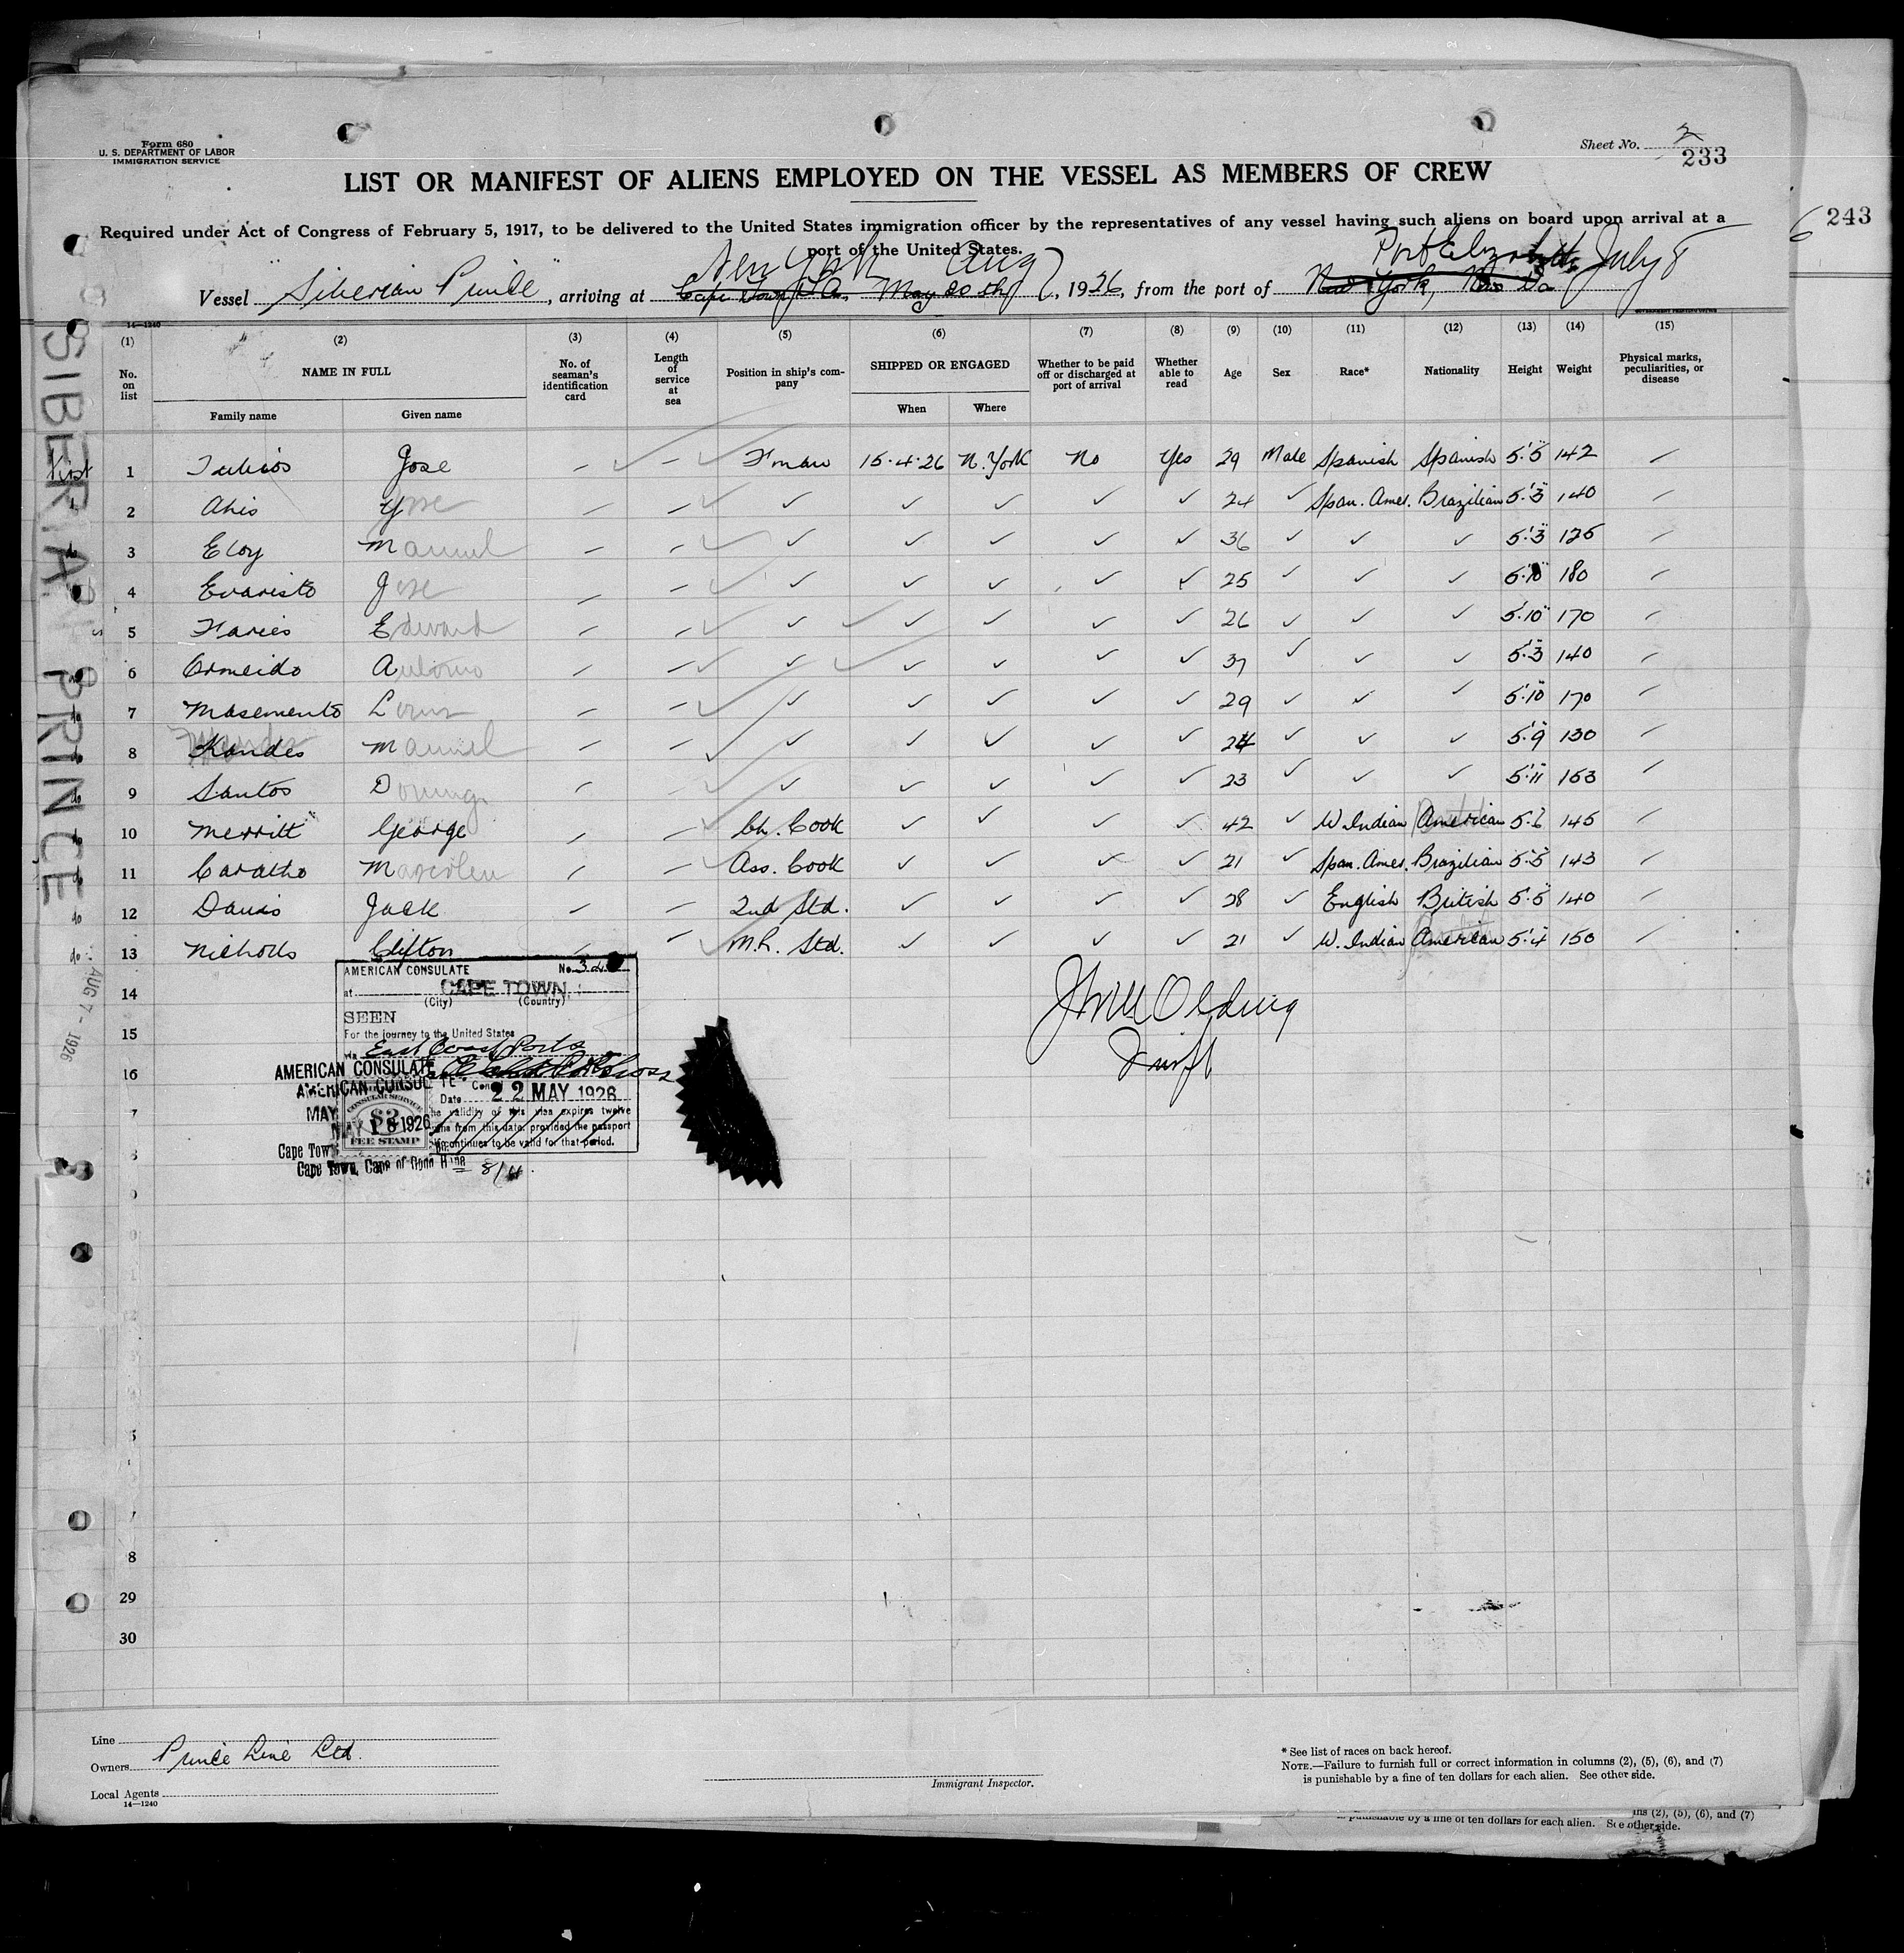 Form 680
U. S. DEPARTMENT OF LABOR
IMMIGRATION SERVICE
Sheet No. 2
233
243
LIST OR MANIFEST OF ALIENS EMPLOYED ON THE VESSEL AS MEMBERS OF CREW
Required under Act of Congress of February 5, 1917, to be delivered to the United States immigration officer by the representatives of any vessel having such aliens on board upon arrival at a
port of the United States.
New York Aug 7 Port Elizabeth, July 8
Vessel "Siberian Prince", arriving at Cape Town May 20th, 1926, from the port of New York,
14—1240
(1) (2) (3) (4) (5) (6) (7) (8) (9) (10) (11) (12) (13) (14) (15)
No. on list NAME IN FULL No. of seaman's identification card Length of service at sea Position in ship's company SHIPPED OR ENGAGED Whether to be paid off or discharged at port of arrival Whether able to read Age Sex Race* Nationality Height Weight Physical marks, peculiarities, or disease
Family name Given name When Where
1 Jose F'man 15·4·26 N. York No Yes 29 Male Spanish Spanish 5'5" 142
2 Jose 24 Span. Amer. Brazilian 5'3" 140
3 Eloy Manuel 36 5'3" 125
4 Evaristo Jose 25 180
5 Edward 26 5'10" 170
6 Antonio 37 5'3" 140
7 Masemento Louis 29 5'10" 170
8 Kandes Manuel 24 5'9" 130
9 Santos Doming 23 5'11" 163
10 Merritt George Ch. Cook 42 W. Indian American 5'6 145
11 Ass. Cook 21 Span. Amer. Brazilian 5'5" 143
12 Davis Jack 2nd Std. 28 English British 5'5" 140
13 Nicholls Clifton M.R. Std. 21 W. Indian American 5'4" 150
14
15
16
SIBERIAN PRINCE
AUG 7 - 1926
AMERICAN CONSULATE No.
at CAPE TOWN
(City) (Country)
SEEN
For the journey to the United States
via East Coast Ports
AMERICAN CONSULATE
AMERICAN CONSUL
Date 22 MAY 1926
The validity of this visa expires twelve
from this date, provided the passport
continues to be valid for that period.
CONSULAR SERVICE
$2
FEE STAMP
MAY 1926
Cape Town
Cape Town, Cape of Good Hope
8
29
30
Line
Owners Prince Line Ltd.
Local Agents
14—1240
Immigrant Inspector.
* See list of races on back hereof.
NOTE.—Failure to furnish full or correct information in columns (2), (5), (6), and (7)
is punishable by a fine of ten dollars for each alien. See other side.
ins (2), (5), (6), and (7)
is punishable by a fine of ten dollars for each alien. See other side.